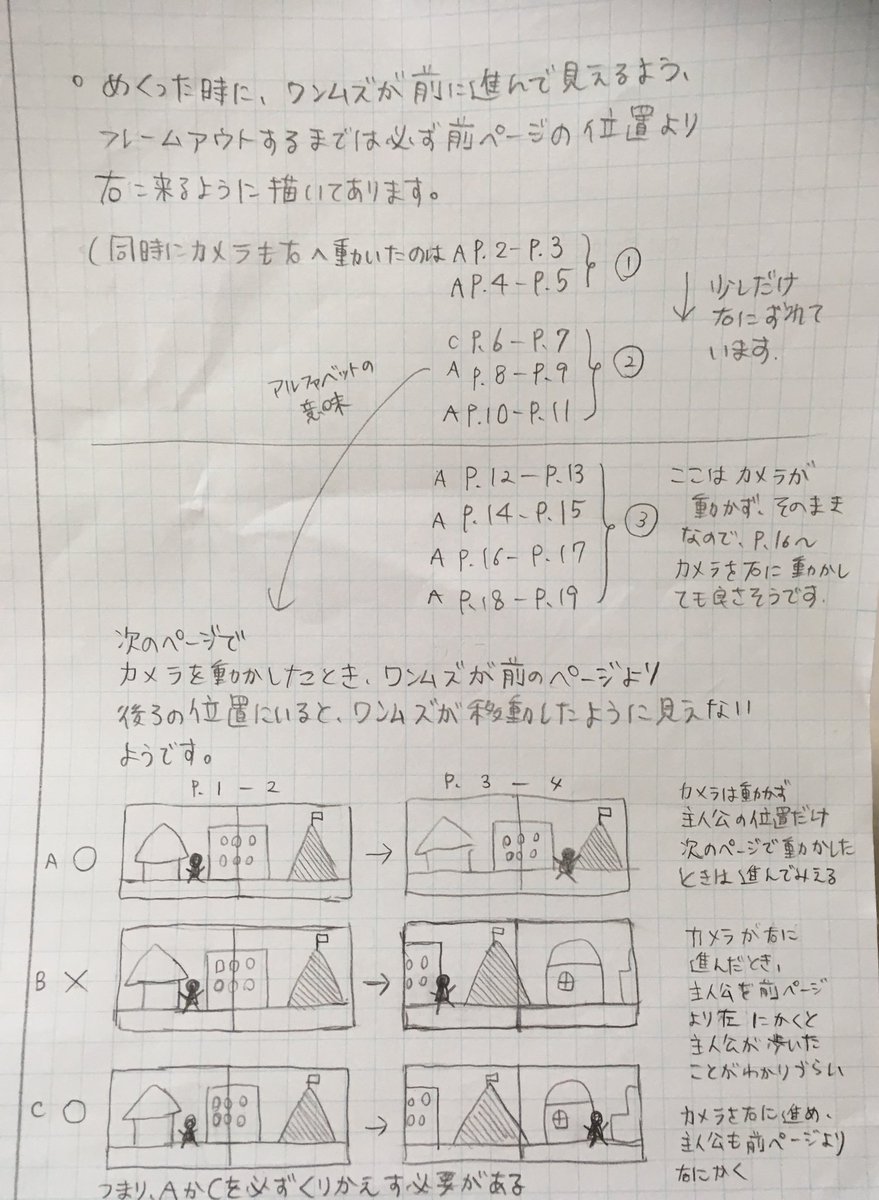 。めくった時に、ワンムズが前に進んで見えるよう、
フレームアウトするまでは必ず前ページの位置より
右に来るように描いてあります。
(同時にカメラも右へ動いたのは A P.2-P.3
A P.4-P.5
①
↓ 少しだけ
右にずれて
います.
C P.6-P.7
A P.8-P.9
A P.10-P.11
②
アルファベットの
意味
A P.12-P.13
A P.14-P.15
A P.16-P.17
A P.18-P.19
③
ここは カメラが
動かず、そのまま
なので、P.16〜
カメラを右に動かし
ても良さそうです.
次のページで
カメラを動かしたとき、ワンムズが前のページより
後ろの位置にいると、ワンムズが移動したように見えない
ようです。
P. 1 - 2
P. 3 - 4
A ○
→
カメラは動かず
主人公の位置だけ
次のページで動かした
ときは進んでみえる
B ×
→
カメラが右に
進んだとき、
主人公を前ページ
より左にかくと
主人公が歩いた
ことがわかりづらい
C ○
→
カメラを右に進め、
主人公も前ページより
右にかく
つまり、AかCを必ずくりかえす必要がある